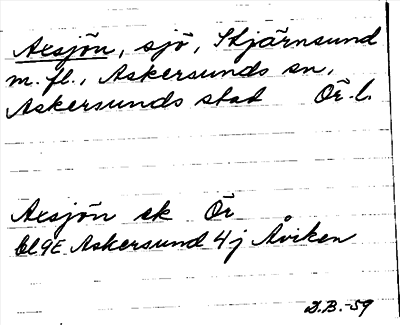 Axsjön, sjö, Stjärnsund
m. fl., Askersunds sn,
Askersunds stad Ör. l.
Axsjön sk Ör
bl 9E Askersund 4j Åviken
D.B.-59